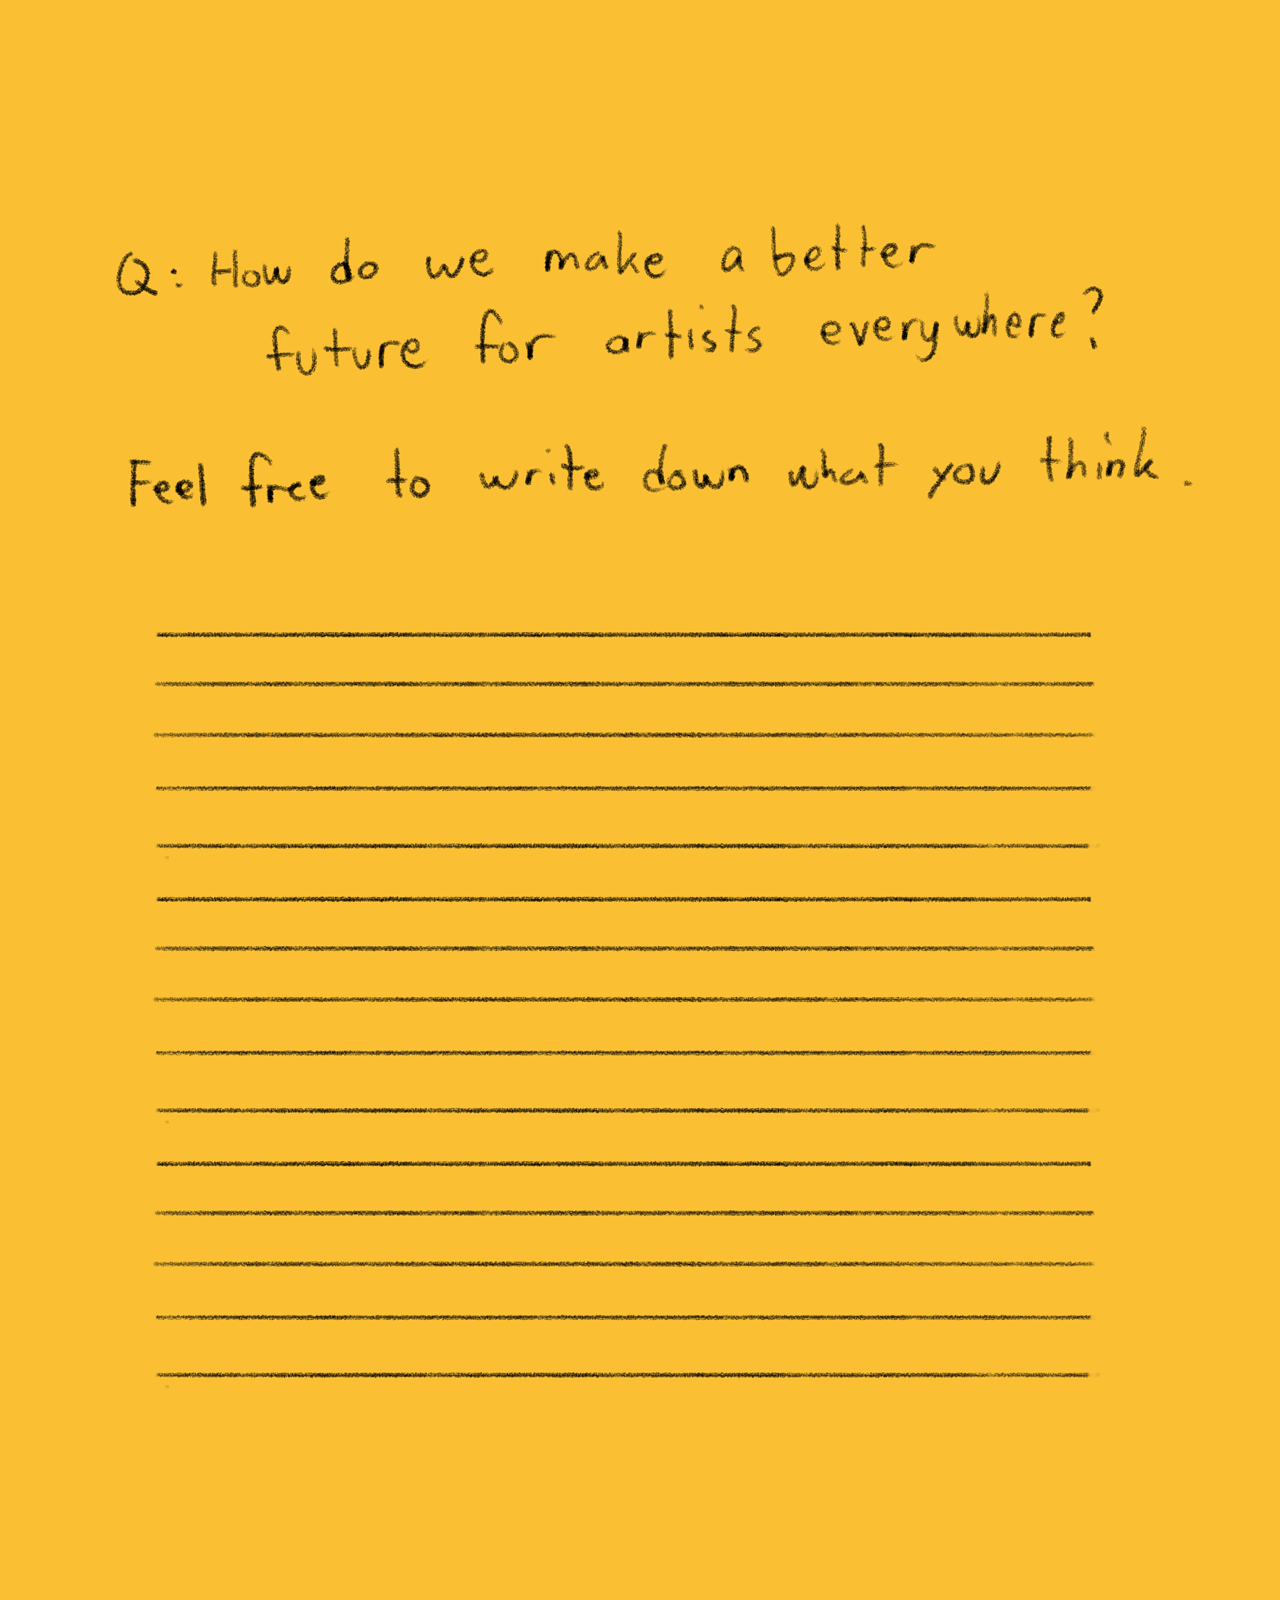 Q: How do we make a better
future for artists everywhere?
Feel free to write down what you think.